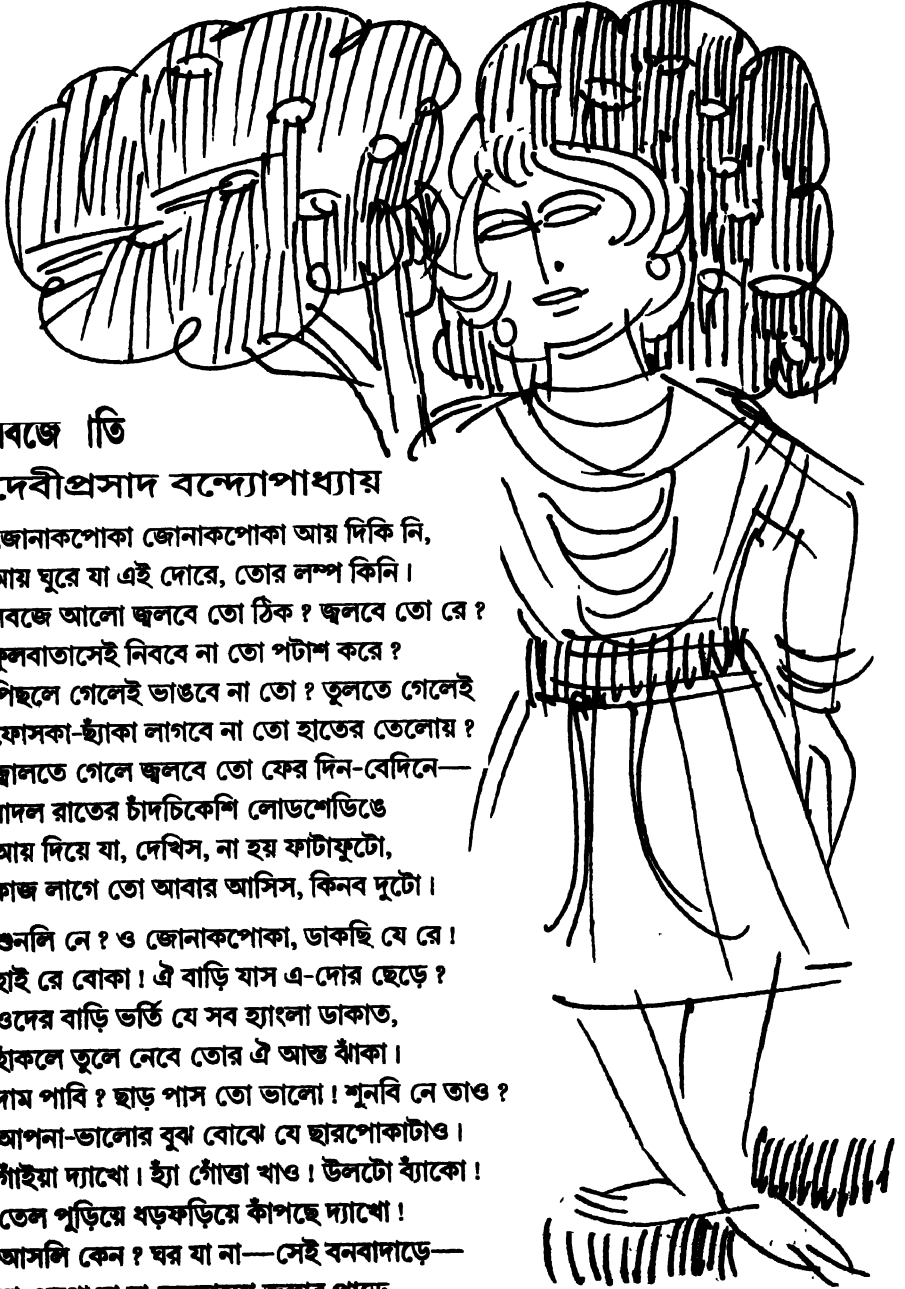 দেবীপ্রসাদ বন্দ্যোপাধ্যায়
জোনাকপোকা জোনাকপোকা আয় দিকি নি,
আয় ঘুরে যা এই দোরে, তোর লম্প কিনি।
সবজে আলো জ্বলবে তো ঠিক ? জ্বলবে তো রে ?
ফুলবাতাসেই নিববে না তো পটাশ করে ?
পিছলে গেলেই ভাঙবে না তো ? তুলতে গেলেই
ফোসকা-ছ্যাঁকা লাগবে না তো হাতের তেলোয় ?
জ্বালতে গেলে জ্বলবে তো ফের দিন-বেদিনে—
বাদল রাতের চাঁদচিকেশি লোডশেডিঙে
আয় দিয়ে যা, দেখিস, না হয় ফাটাফুটো,
কাজ লাগে তো আবার আসিস, কিনব দুটো।
শুনলি নে ? ও জোনাকপোকা, ডাকছি যে রে !
ছাই রে বোকা ! ঐ বাড়ি যাস এ-দোর ছেড়ে ?
ওদের বাড়ি ভর্তি যে সব হ্যাংলা ডাকাত,
হাঁকলে তুলে নেবে তোর ঐ আস্ত ঝাঁকা।
দাম পাবি ? ছাড় পাস তো ভালো ! শুনবি নে তাও ?
আপনা-ভালোর বুঝ বোঝে যে ছারপোকাটাও।
গাঁইয়া দ্যাখো। হ্যাঁ গোঁত্তা খাও ! উলটো ব্যাঁকো !
তেল পুড়িয়ে ধড়ফড়িয়ে কাঁপছে দ্যাখো !
আসলি কেন ? ঘর যা না—সেই বনবাদাড়ে—